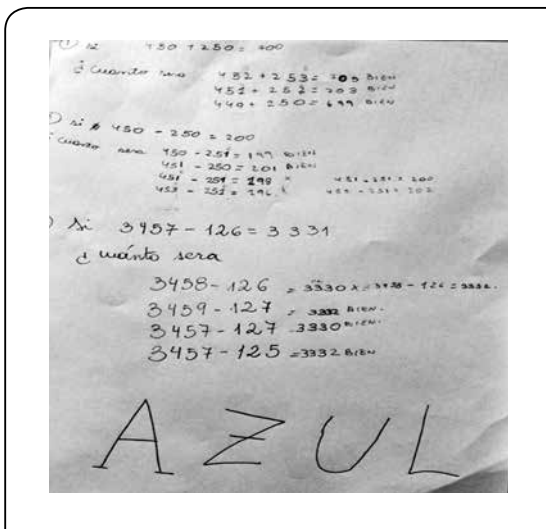 1) si 450 + 250 = 700
¿ Cuanto sera 452 + 253 = 705 BIEN
451 + 252 = 703 BIEN
250 = 699 BIEN
) si 450 - 250 = 200
Cuanto sera 450 - 251 = 199 BIEN
451 - 250 = 201 BIEN
451 - 251 = 198 x 451 - 251 = 200
= 196 x = 202
) si 3457 - 126 = 3331
¿ cuánto sera
3458 - 126 = 3330 x = 3458 - 126 = 3332.
3459 - 127 = 3332 BIEN.
3457 - 127 3330 BIEN.
3457 - 125 = 3332 BIEN
AZUL